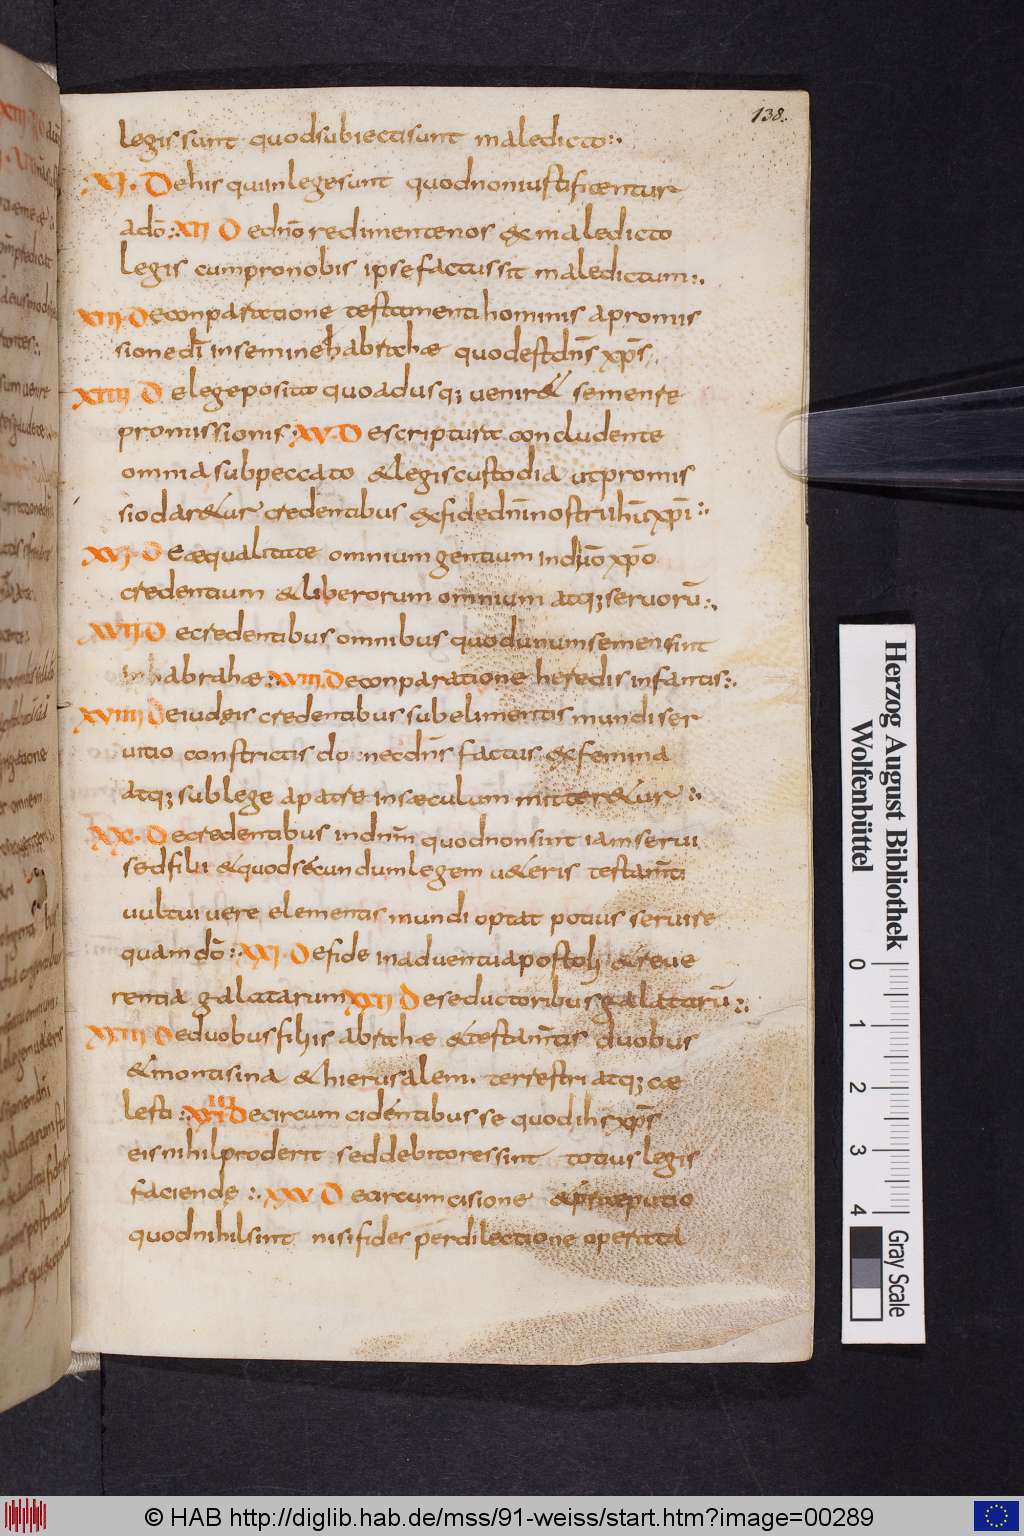 138.
legis sunt quod subiecti sunt maledicto:.
XI. De his qui in lege sunt quod non iustificentur
a dō:. XII De dn̄o redimente nos & maledicto
legis cum pro nobis ipse factus sit maledictum:.
XIII. De conparatione testamenti hominis a promis
sione dī in semine habrahae quod est dn̄s xp̄s
XIIII De lege posito quo adusq; venir& semen te
promissionis. XV. De scriptura concludente
omnia sub peccato & legis custodia ut promis
sio dar&ur credentibus & fide dn̄i nostri ihū xp̄i:.
XVI. De aequalitate omnium gentium in dn̄o xp̄o
credentium & liberorum omnium atq; servorū:.
XVII De credentibus omnibus quod unum semen sint
in habrahae:. XVIII De conparatione heredis infantis:.
XVIIII De iudeis credentibus sub elimentis mundi ser
vitio constrictis do nec dn̄s factus & femina
atq; sub lege a patre in saeculum mitter&ur:.
XX. De credentibus in dn̄m quod non sint iam servi
sed filii & quod secundum legem v&eris testam̄ti
vult vivere elementis mundi optat potius servire
quam dō:. XXI. De fide in adventu apostoli & reve
rentia galatarum XXII De seductoribus galatarū:.
XXIII De duobus filiis abrahae & testam̄tis duobus
& montis sina & hierusalem. terrestri atq; cae
lesti:. XXIIII De circumcidentibus se quod ihs xp̄s
eis nihil proderit sed debitores sint totius legis
faciende:. XXV De circumcisione & praeputio
quod nihil sint nisi fides per dilectione operata
Herzog August Bibliothek
Wolfenbüttel
0 1 2 3 4
Gray Scale
© HAB http://diglib.hab.de/mss/91-weiss/start.htm?image=00289